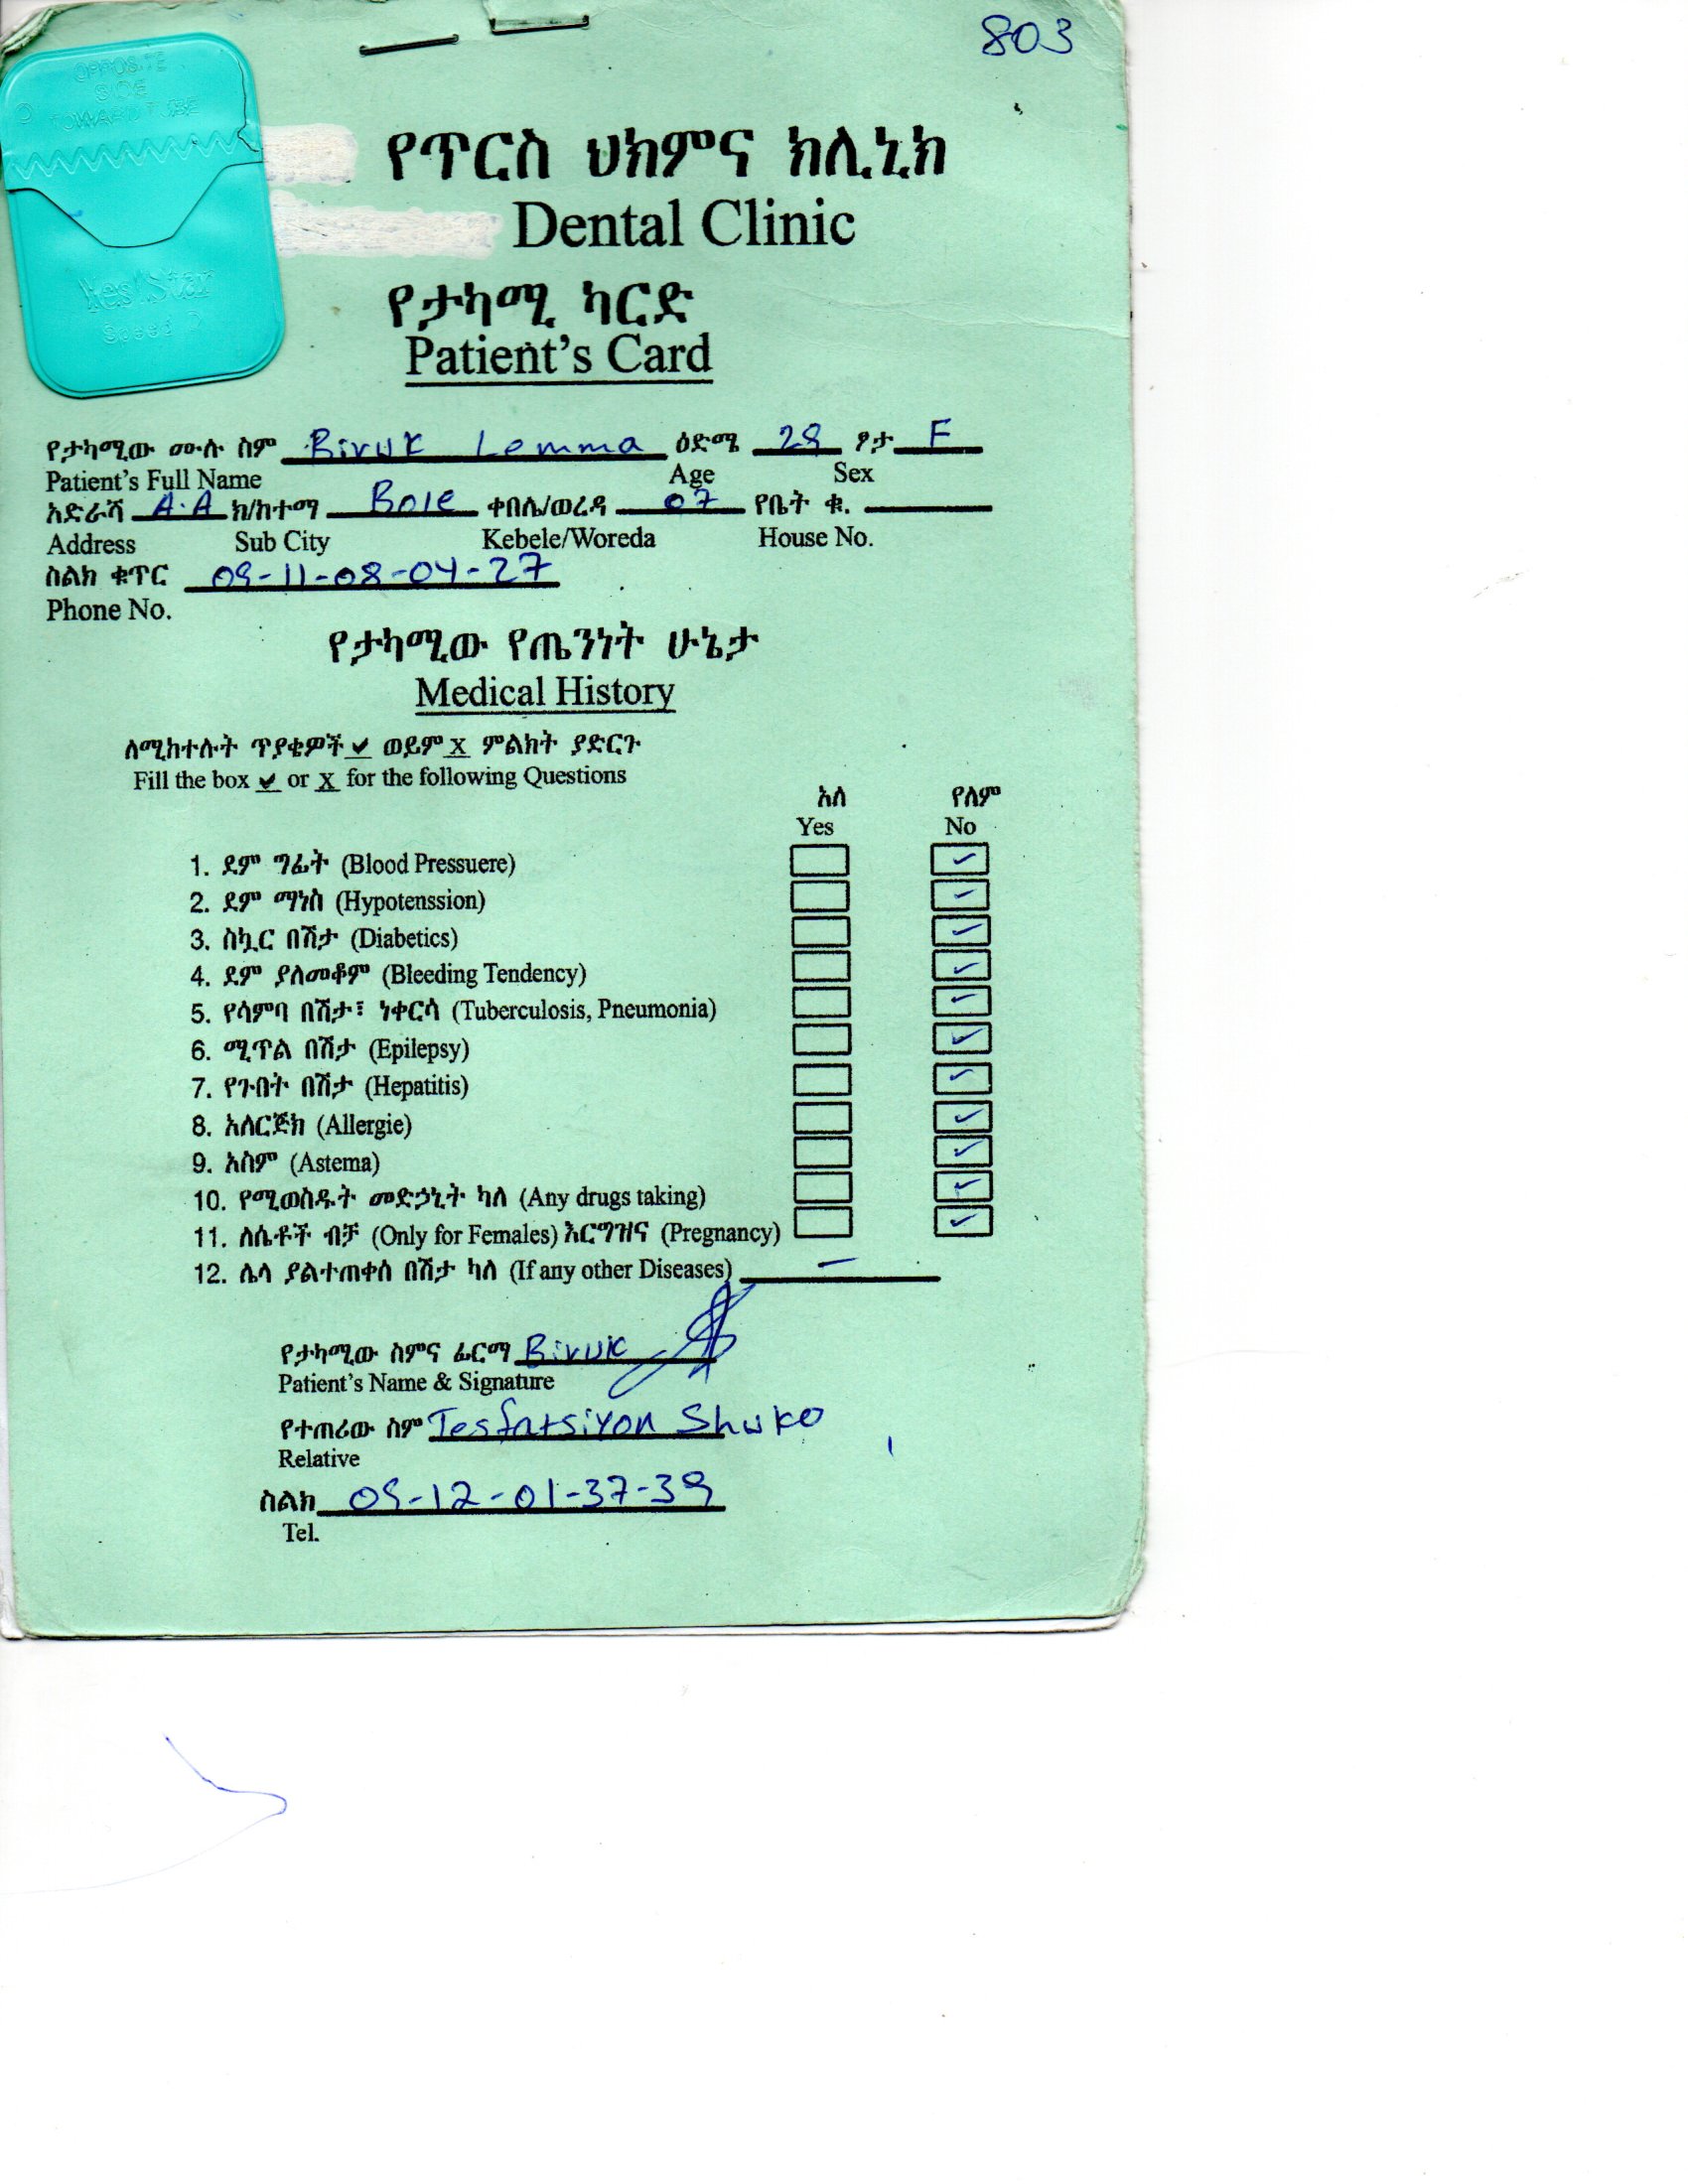 803
OPPOSITE
SIDE
TOWARD TUBE
የጥርስ ህክምና ክሊኒክ
Dental Clinic
የታካሚ ካርድ
Patient's Card
የታካሚው ሙሉ ስም Biruk Lemma ዕድሜ 29 ፆታ F
Patient's Full Name Age Sex
አድራሻ A.A ክ/ከተማ Bole ቀበሌ/ወረዳ 07 የቤት ቁ.
Address Sub City Kebele/Woreda House No.
ስልክ ቁጥር 09-11-08-04-27
Phone No.
የታካሚው የጤንነት ሁኔታ
Medical History
ለሚከተሉት ጥያቄዎች ✔ ወይም X ምልክት ያድርጉ
Fill the box ✔ or X for the following Questions
አለ የለም
Yes No
1. ደም ግፊት (Blood Pressuere) ✓
2. ደም ማነስ (Hypotenssion) ✓
3. ስኳር በሽታ (Diabetics) ✓
4. ደም ያለመቆም (Bleeding Tendency) ✓
5. የሳምባ በሽታ፣ ነቀርሳ (Tuberculosis, Pneumonia) ✓
6. ሚጥል በሽታ (Epilepsy) ✓
7. የጉበት በሽታ (Hepatitis) ✓
8. አለርጅክ (Allergie) ✓
9. አስም (Astema) ✓
10. የሚወስዱት መድኃኒት ካለ (Any drugs taking) ✓
11. ለሴቶች ብቻ (Only for Females) እርግዝና (Pregnancy) ✓
12. ሌላ ያልተጠቀሰ በሽታ ካለ (If any other Diseases) –
የታካሚው ስምና ፊርማ Biruk
Patient's Name & Signature
የተጠሪው ስም Tesfatsiyon Shuko
Relative
ስልክ 09-12-01-37-39
Tel.